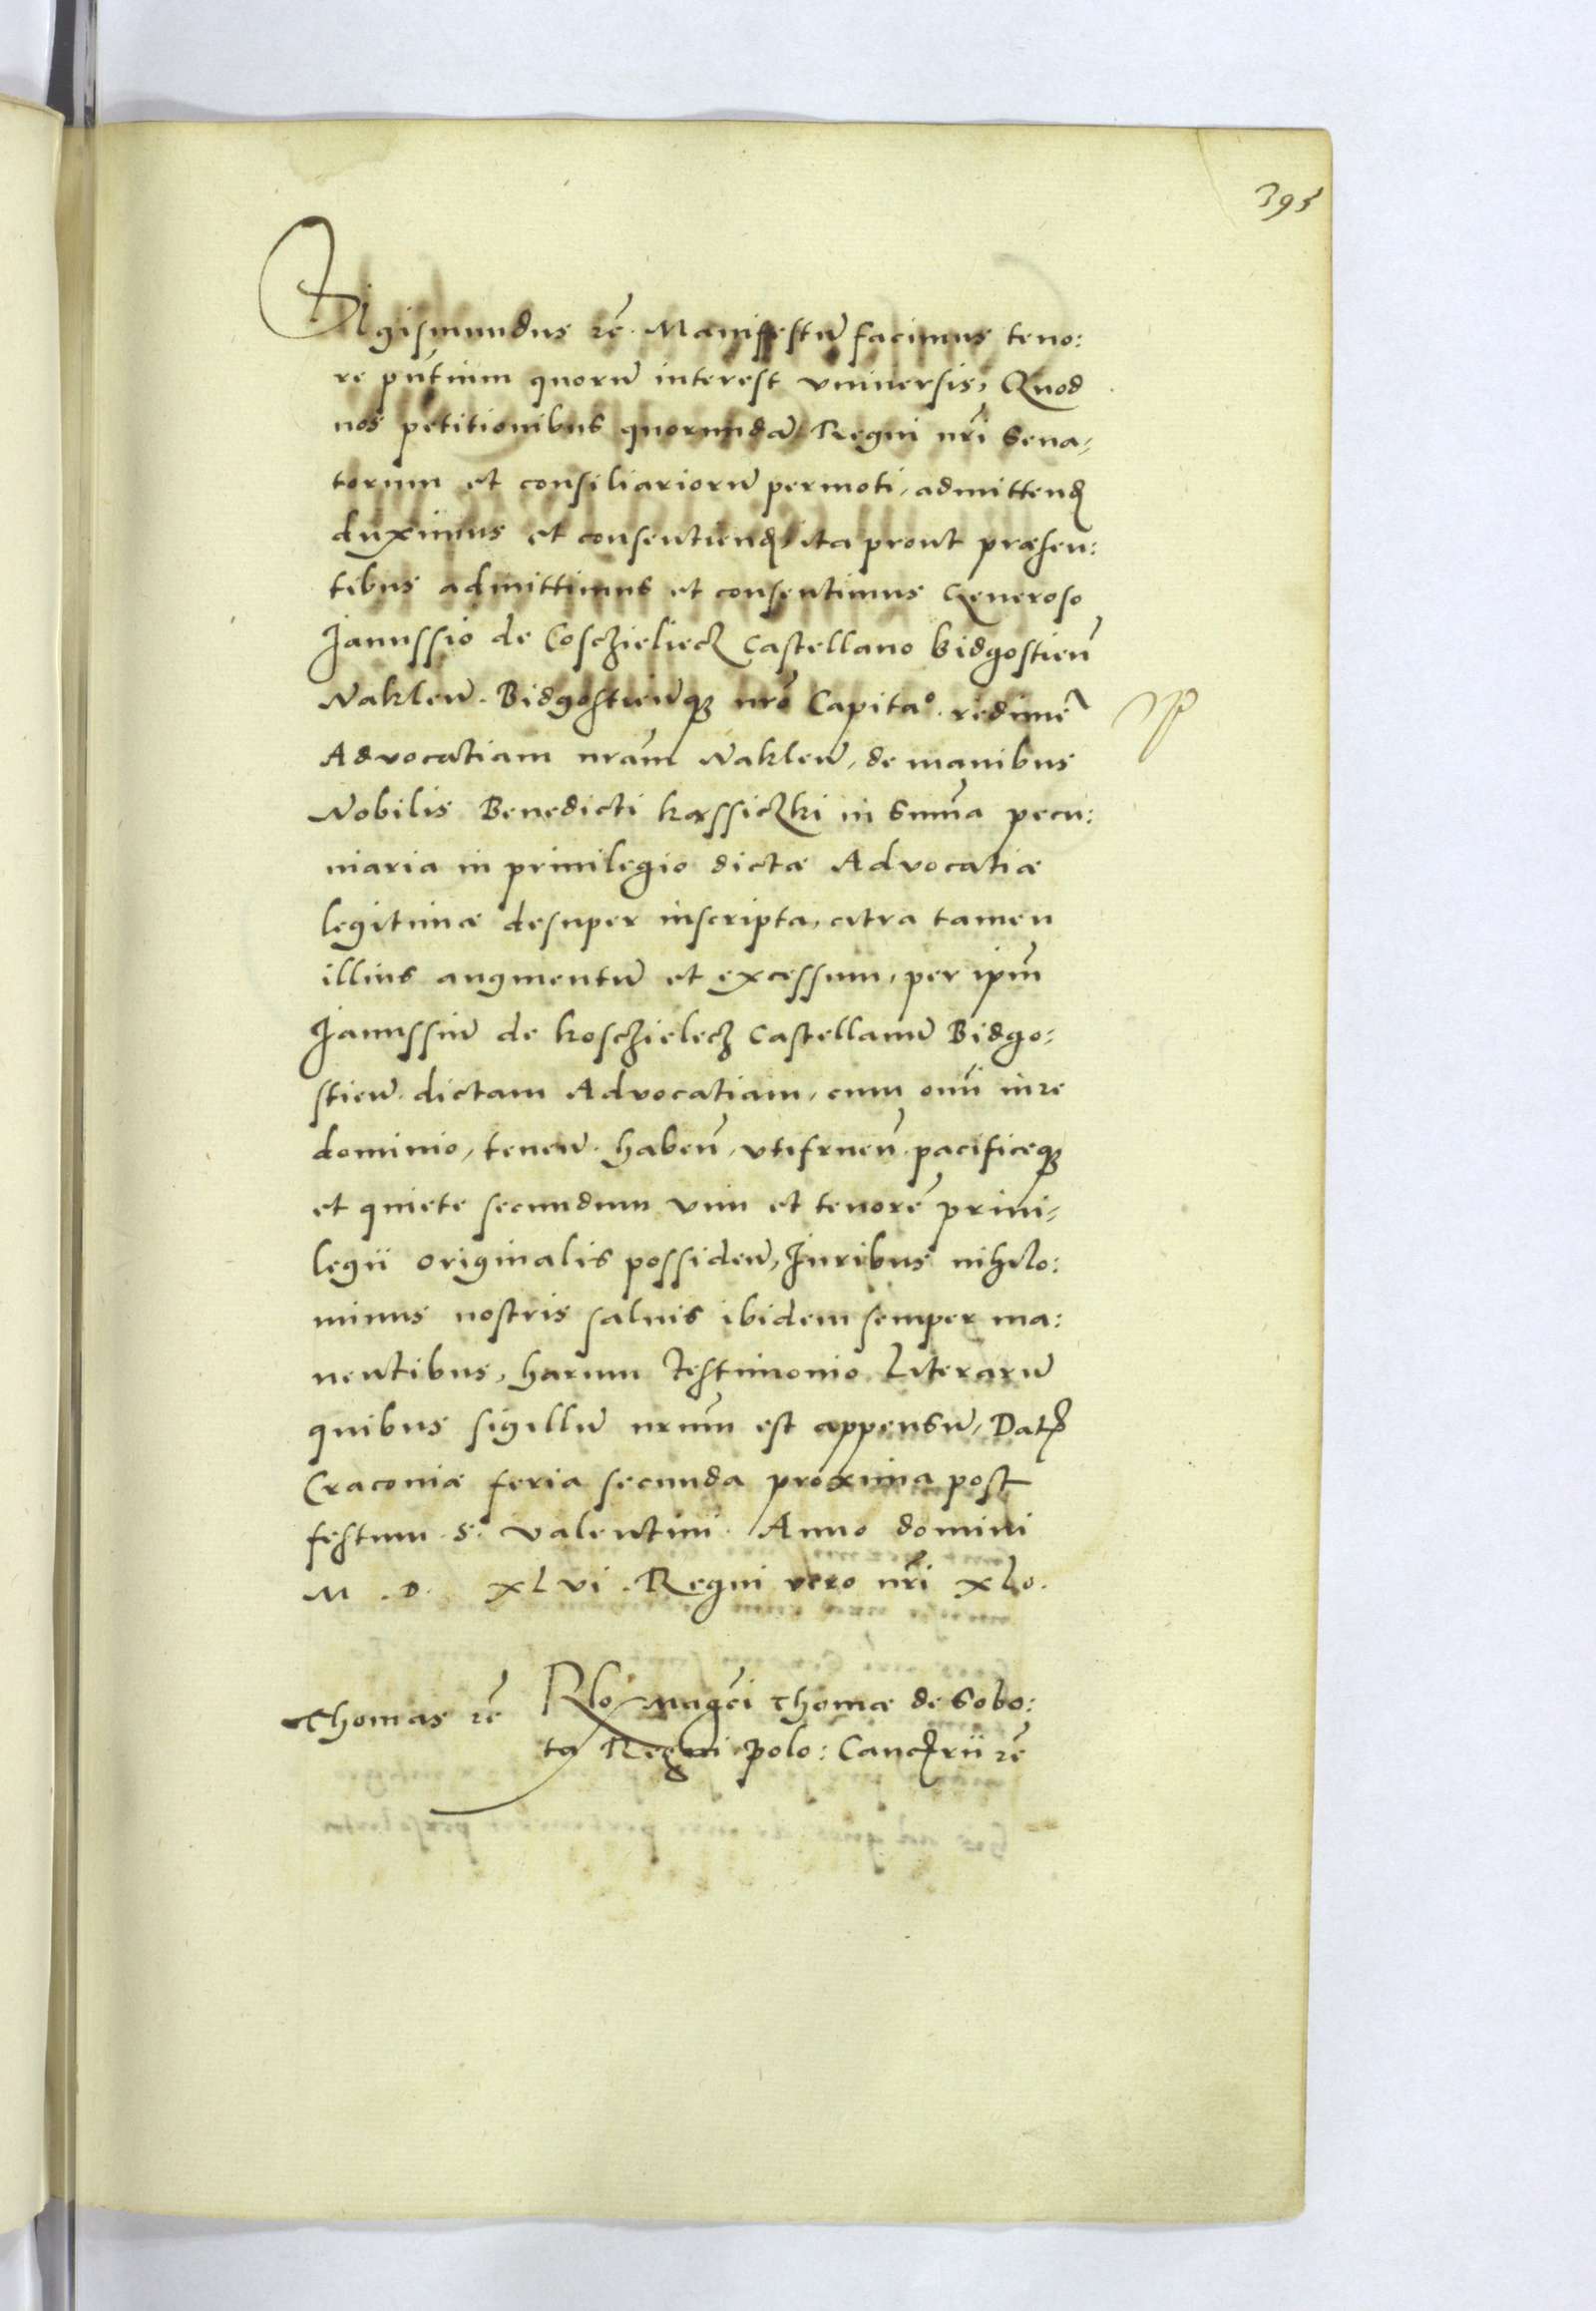 393
Sigismundus rẽ. Manifestũ facimus teno:
re pñtium quorũ interest vniuersis, Quod
nos petitionibus quorundã Regni nrĩ Sena,
torum et consiliariorũ permoti, admittend
duximus et consentiend, ita prout præsen:
tibus admittimus et consentimus Generoso
Janussio de Coschieliecz Castellano bidgostień
Naklen̄. Bidgostien̄q; nrõ Capitaº. redimē
Advocatiam nram̃ Naklen̄, de manibus
Nobilis Benedicti kassiczki in Sum̃a pecu:
niaria in priuilegio dictæ Advocatiæ
legitime desuper inscripta, citra tamen
illius augmentũ et excessum, per ipm̃
Janussiũ de koschielecz Castellanũ Bidgo:
stien̄. dictam Advocatiam, cum om̃i iure
dominio, tenen̄. haben̄, vtifruen̄. pacificeq;
et quiete secundum vim et tenorẽ priui,
legii originalis possiden̄, Juribus nihilo:
minus nostris saluis ibidem semper ma:
nentibus, harum testimonio literarũ
quibus sigillũ nrum̃ est appensũ, Dat
Cracoviæ feria secunda proxima post
festum. S. valentini. Anno domini
M . D. XLVI . Regni vero nrĩ XLo.
Thomas rẽ
Rlo Magc̃i Thomæ de Sobo:
ta Regni polo: Cancrii rẽ